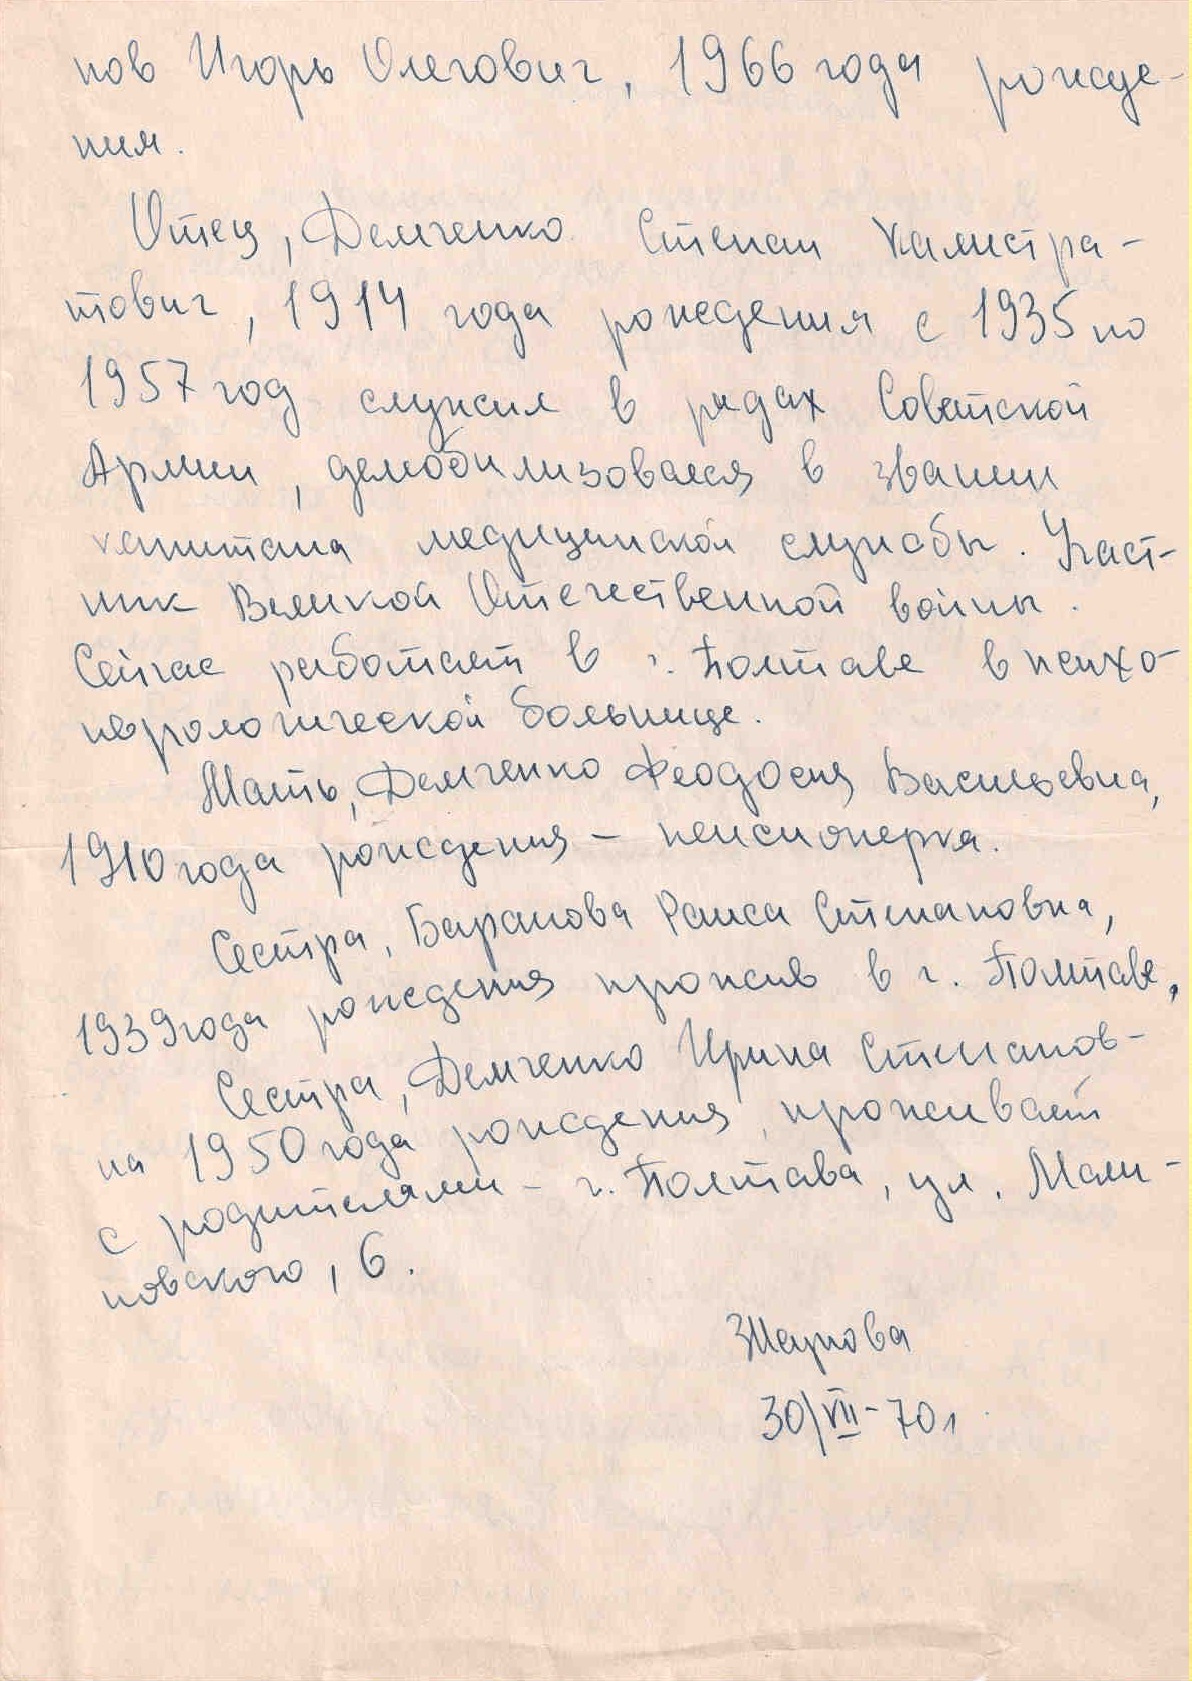 пов Игорь Олегович, 1966 года рожде-
ния.
Отец, Демченко Степан Калистра-
тович, 1914 года рождения с 1935 по
1957 год служил в рядах Советской
Армии, демобилизовался в звании
капитана медицинской службы. Участ-
ник Великой Отечественной войны.
Сейчас работает в г. Полтаве в психо-
неврологической больнице.
Мать, Демченко Феодосия Васильевна,
1910 года рождения – пенсионерка.
Сестра, Баранова Раиса Степановна,
1939 года рождения прожив в г. Полтаве,
Сестра, Демченко Ирина Степанов-
на 1950 года рождения, проживает
с родителями – г. Полтава, ул. Мали-
новского, 6.
30/VII-70г